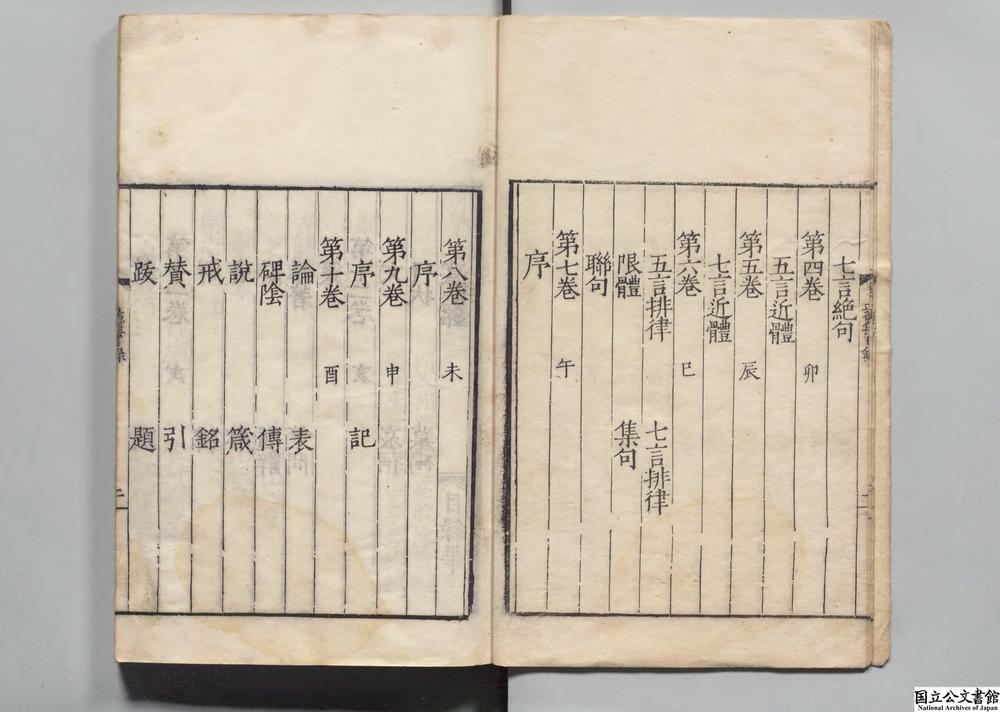 七言絶句
第四卷 卯
五言近體
第五卷 辰
七言近體
第六卷 巳
五言排律 七言排律
限體 集句
聯句
第七卷 午
序
第八卷 未
序
第九卷 申
序 記
第十卷 酉
論 表
碑陰 傳
說 箴
戒 銘
賛 引
跋 題
二
国立公文書館
National Archives of Japan